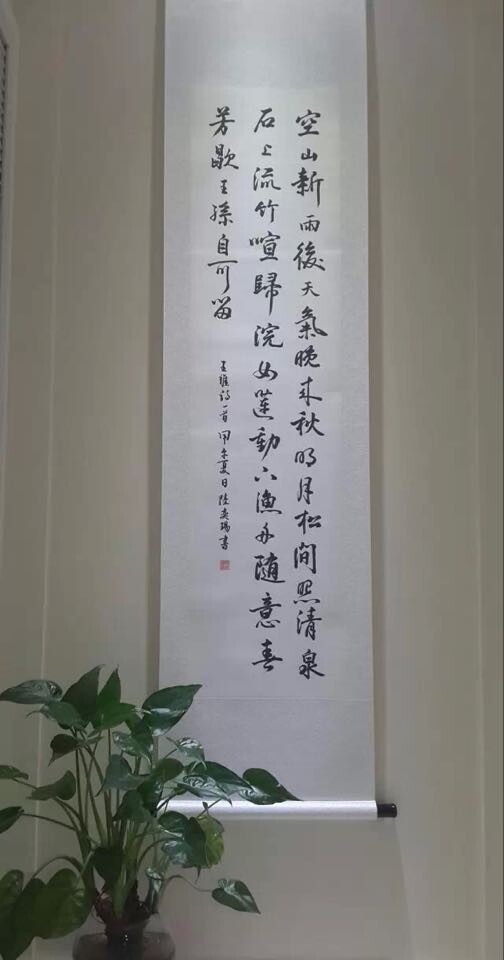 空山新雨後天氣晚来秋明月松間照清泉
石上流竹喧歸浣女蓮動下漁舟随意春
芳歇王孫自可留
王維詩一首甲午夏日陸瑞書